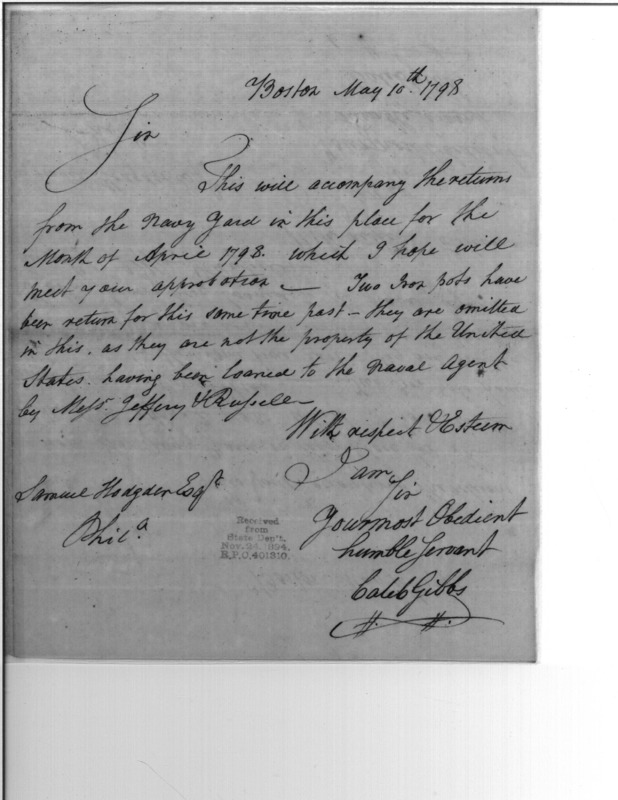 Boston May 10th. 1798
Sir
This will accompany the returns
from the Navy Yard in this place for the
Month of April 1798. which I hope will
meet your approbation — Two Iron pots have
been return for this some time past – they are omitted
in this, as they are not the property of the United
States. having been loaned to the Naval Agent
by Messrs. Jeffery & Russell –
With respect & Esteem
I am
Sir
Your most Obedient
humble Servant
Caleb Gibbs
Samuel Hodgdon Esqr.
Phila
Received
from
State Dep't.
Nov. 24, 1894.
R.P.O. 401310.